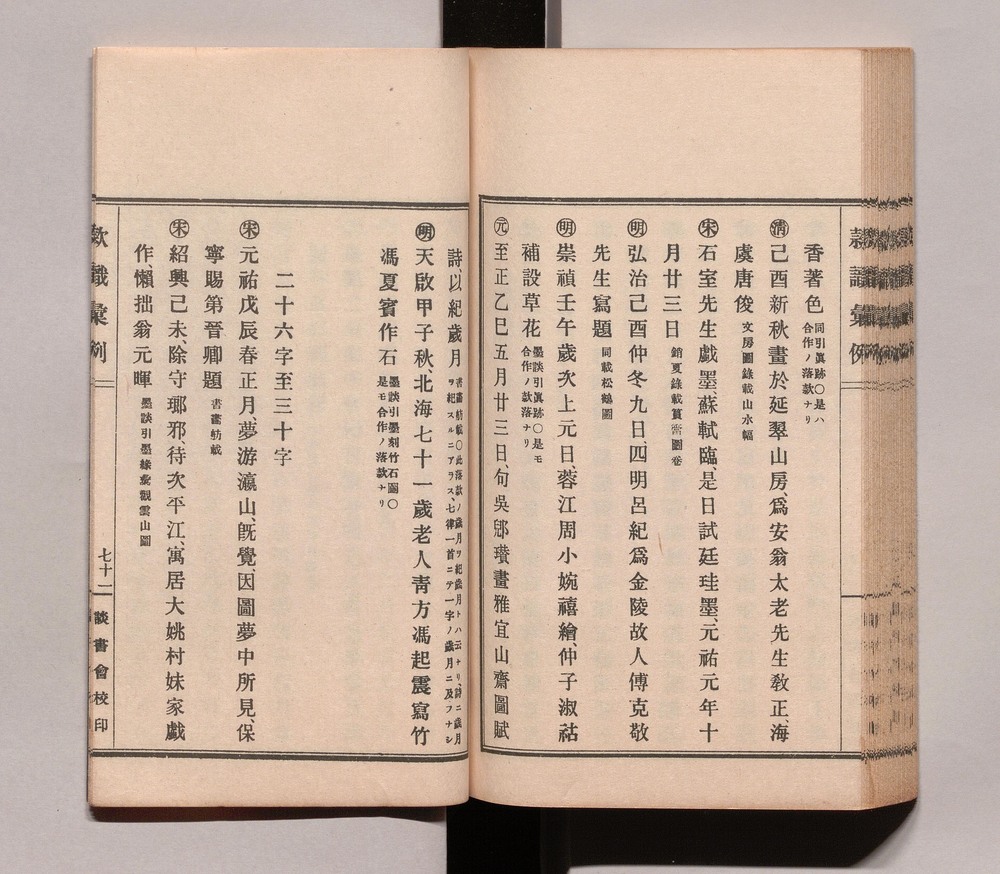 香著色 同引眞跡〇是ハ
合作ノ落款ナリ
㊄淸 己酉新秋畫於延翠山房、爲安翁太老先生敎正、海
虞唐俊 文房圖錄載山水幅
宋 石室先生戲墨、蘇軾臨、是日試廷珪墨、元祐元年十
月廿三日 銷夏錄載篔簹圖卷
明 弘治己酉仲冬九日、四明呂紀爲金陵故人傅克敬
先生寫題 同載松鶴圖
明 崇禎壬午歲次上元日、蓉江周小婉禧繪、仲子淑祜
補設草花 墨談引眞跡〇是モ
合作ノ款落ナリ
元 至正乙巳五月廿三日、句吳郞瓚畫雅宜山齋圖賦
詩、以紀歲月 書畫舫載〇此落款ノ歲月ヲ紀歲月トハ云ナリ、詩ニ歲月
ヲ紀スルニアラス、七律一首ニテ一字ノ歲月ニ及フナシ
明 天啟甲子秋、北海七十一歲老人靑方馮起震寫竹
馮夏賓作石 墨談引墨刻竹石圖〇
是モ合作ノ落款ナリ
二十六字至三十字
宋 元祐戊辰春正月、夢游瀛山、旣覺、因圖夢中所見、保
寧賜第晉卿題 書畫舫載
宋 紹興己未、除守瑯邪、待次平江、寓居大姚村妹家戲
作懶拙翁元暉 墨談引墨緣彙觀雲山圖
款識彙例
七十二
談書會校印